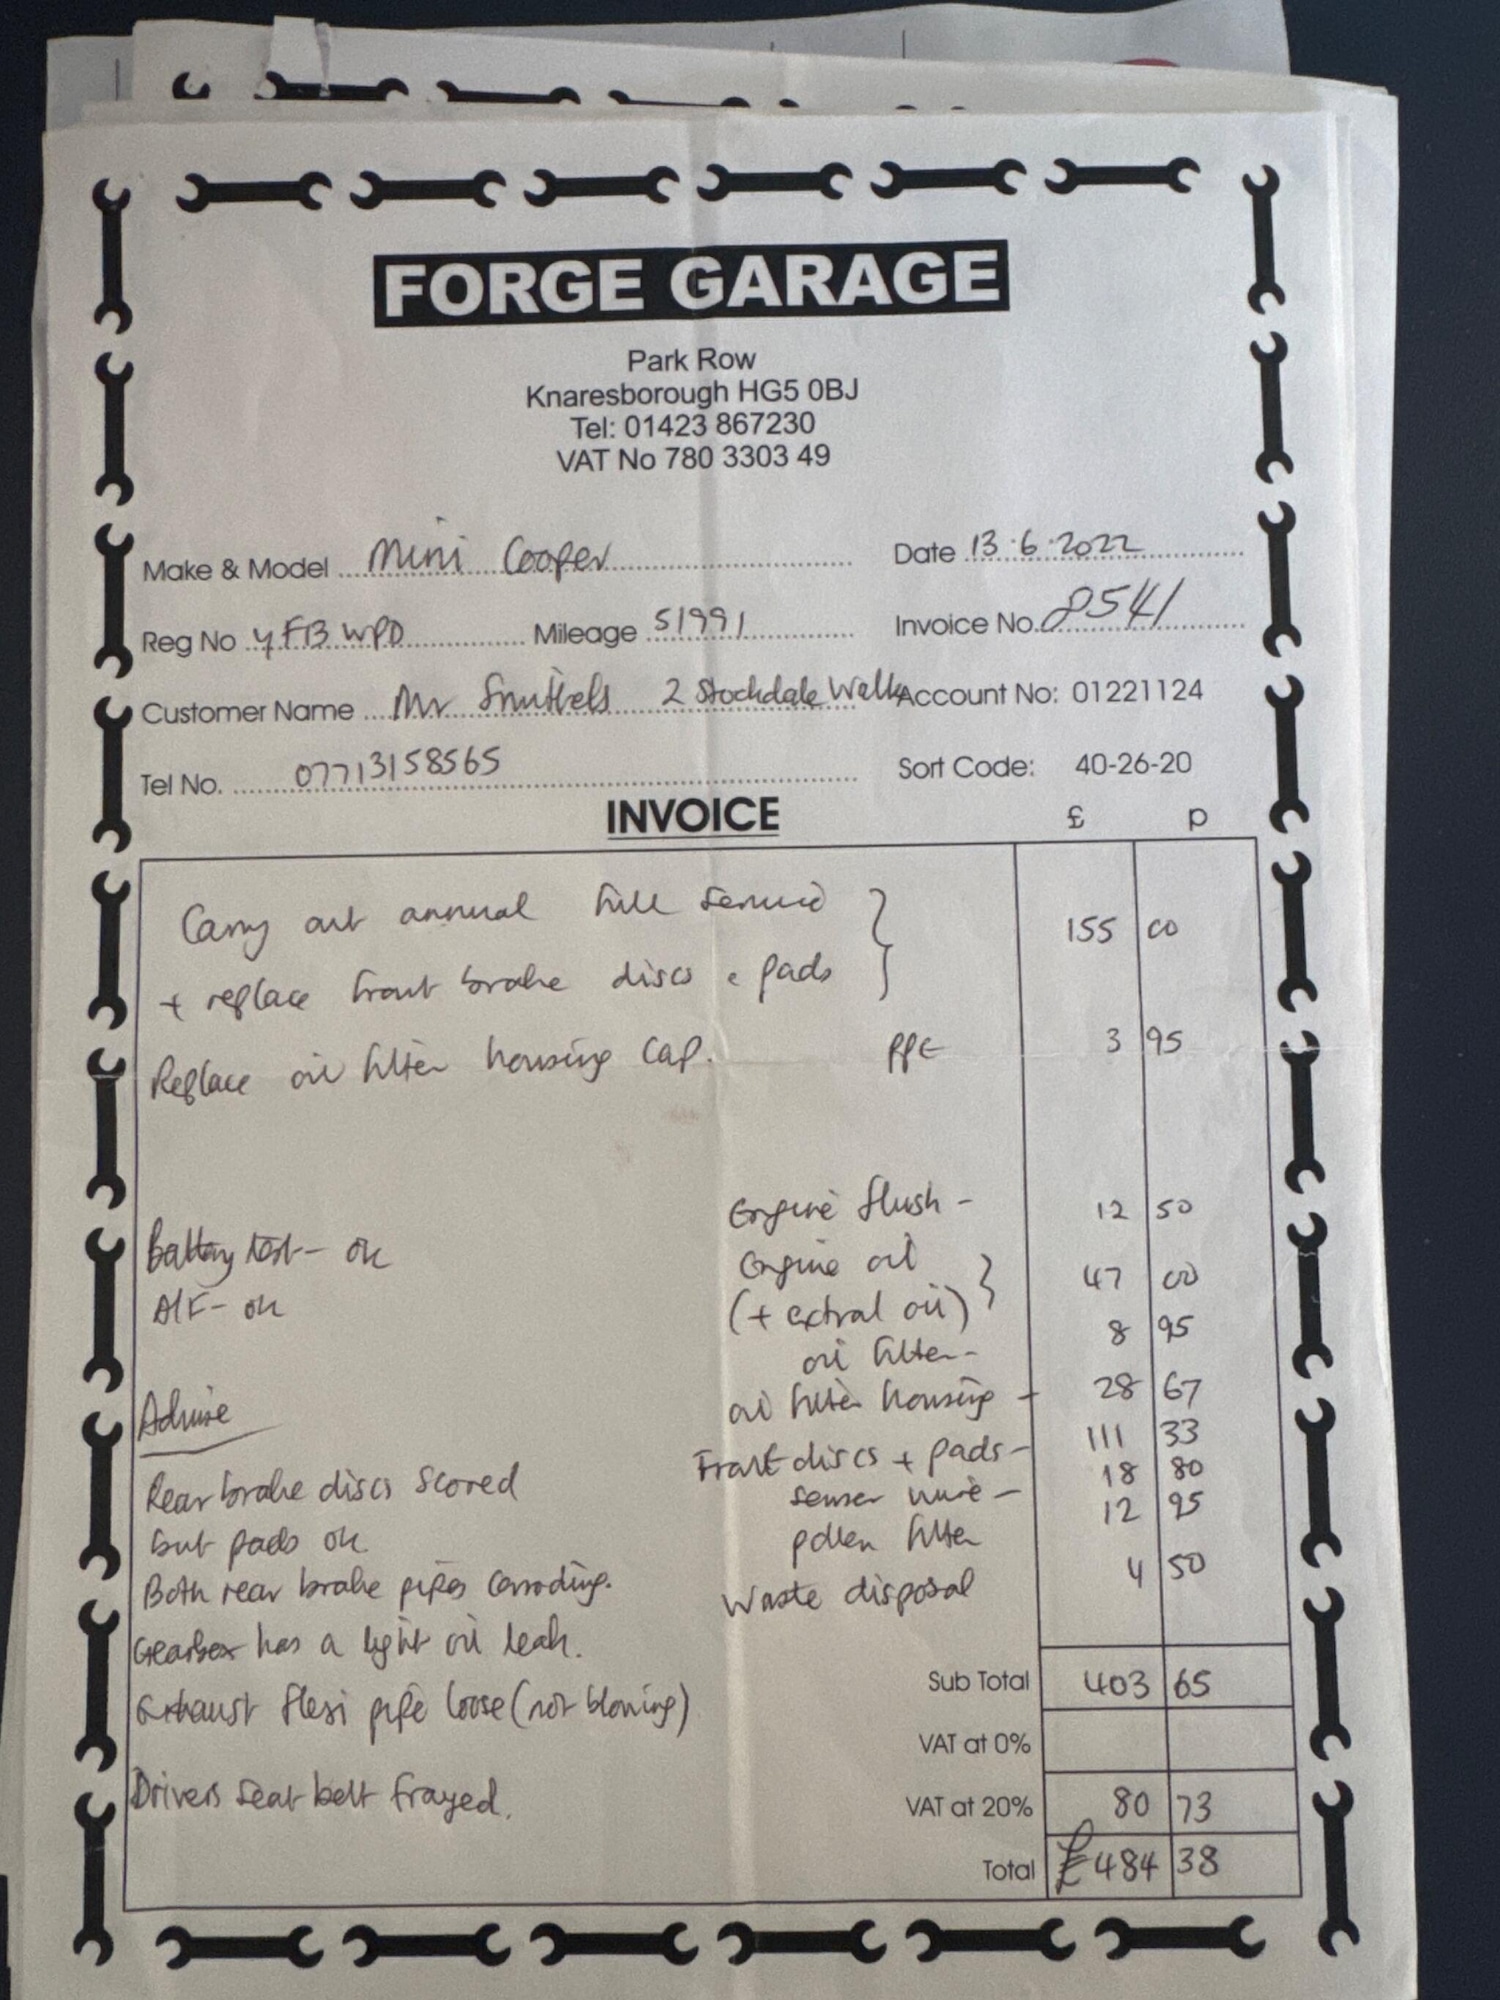 FORGE GARAGE
Park Row
Knaresborough HG5 0BJ
Tel: 01423 867230
VAT No 780 3303 49
Make & Model Mini Cooper Date 13.6.2022
Reg No YF13 WPD Mileage 51991 Invoice No. 8541
Customer Name Mr 2 Stockdale Walk Account No: 01221124
Tel No. 07713158565 Sort Code: 40-26-20
INVOICE £ p
Carry out annual full service 155 00
+ replace front brake discs + pads
Replace oil filter housing cap. PPE 3 95
Engine flush - 12 50
Battery test - ok Engine oil 47 00
A/F - ok (+ extral oil)
oil filter - 8 95
Advise oil filter housing - 28 67
Front discs + pads - 111 33
Rear brake discs scored senser wire - 18 80
but pads ok pollen filter 12 95
Both rear brake pipes corroding. Waste disposal 4 50
Gearbox has a light oil leak.
Sub Total 403 65
Exhaust flexi pipe loose (not blowing)
VAT at 0%
Drivers seat belt frayed. VAT at 20% 80 73
Total £484 38